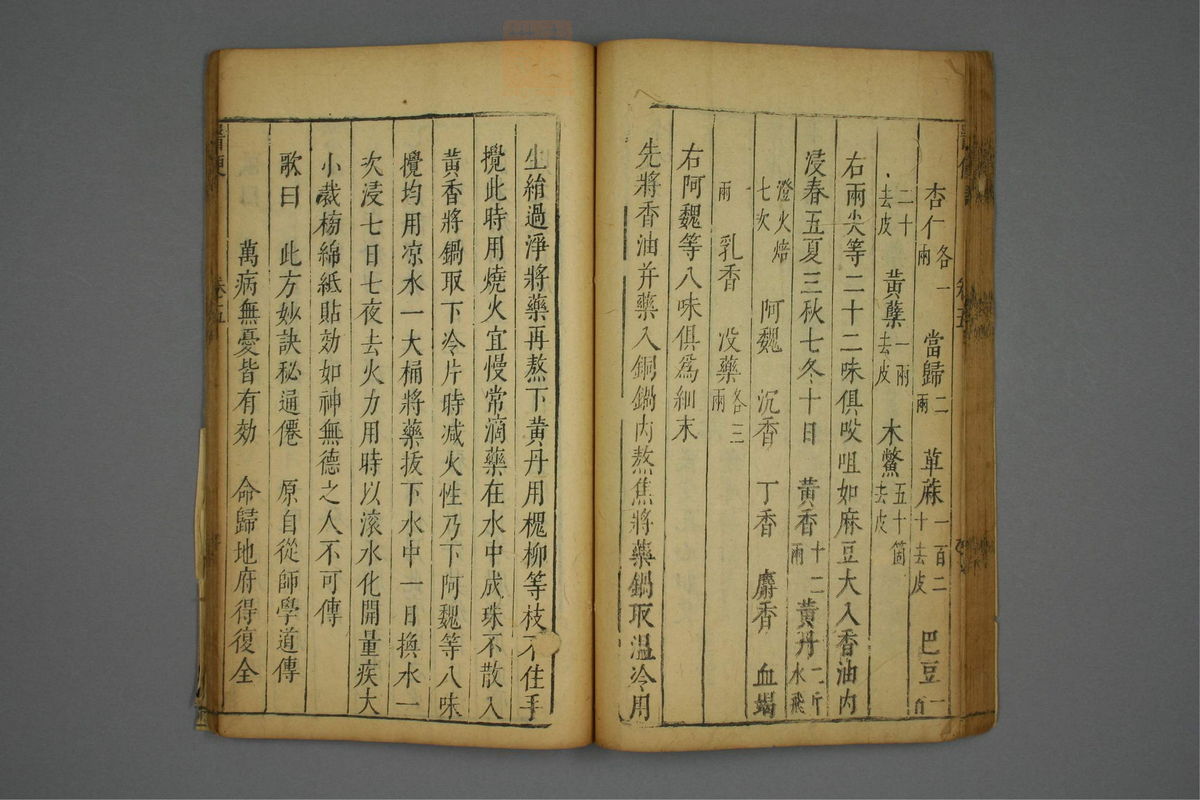 杏仁各一兩 當歸二兩 草蔴一百二十去皮 巴豆一百
二十去皮 黃蘗一兩去皮 木鱉五十箇去皮
右兩尖等二十二味俱㕮咀如麻豆大入香油內
浸春五夏三秋七冬十日 黃香十二兩 黃丹二斤水飛
澄火焙七次 阿魏 沉香 丁香 麝香 血竭
一兩 乳香 没藥各三兩
右阿魏等八味俱爲細末
先將香油并藥入銅鍋內熬焦將藥鍋取溫冷用
生絹過淨將藥再熬下黃丹用槐柳等枝不住手
攪此時用燒火宜慢常滴藥在水中成珠不散入
黃香將鍋取下冷片時减火性乃下阿魏等八味
攪均用凉水一大桶將藥拔下水中一日換水一
次浸七日七夜去火力用時以滚水化開量疾大
小裁楊綿紙貼効如神無德之人不可傳
歌曰 此方妙訣秘通僊 原自從師學道傳
萬病無憂皆有効 命歸地府得復全
醫便
卷五